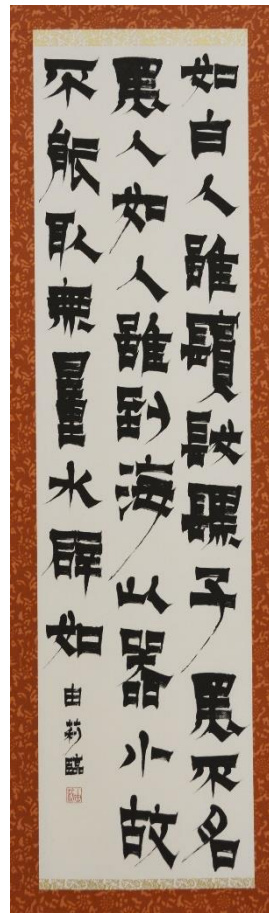 如白人雖子愚不名
愚人如人雖到海以器小故
不能取無量水辟如
由莉臨